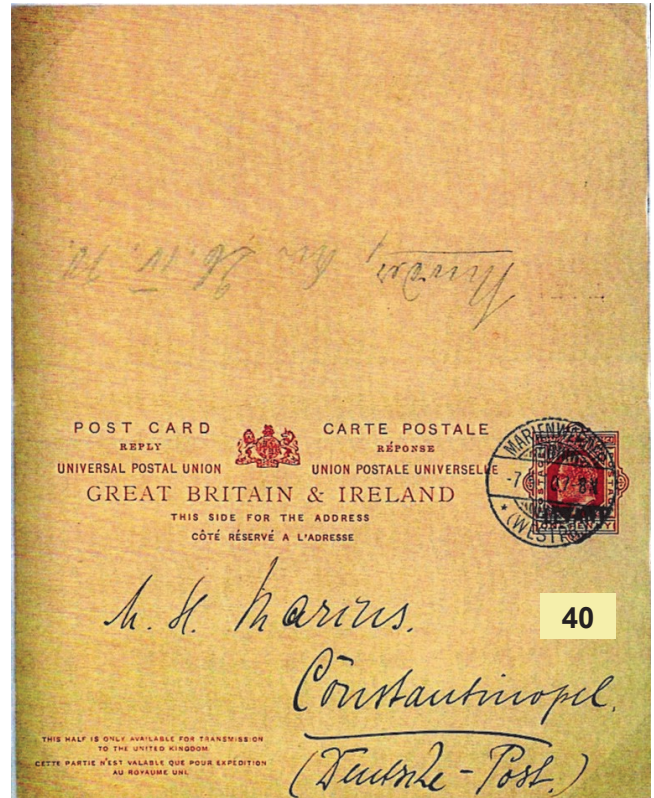 26. IV.
POST CARD
REPLY
UNIVERSAL POSTAL UNION
CARTE POSTALE
RÉPONSE
UNION POSTALE UNIVERSELLE
GREAT BRITAIN & IRELAND
THIS SIDE FOR THE ADDRESS
CÔTÉ RÉSERVÉ A L'ADRESSE
MARIENWERDER
(WESTPR.)
M. H. Marius.
40
Constantinopel.
(Deutsche-Post.)
THIS HALF IS ONLY AVAILABLE FOR TRANSMISSION
TO THE UNITED KINGDOM
CETTE PARTIE N'EST VALABLE QUE POUR EXPÉDITION
AU ROYAUME UNI.